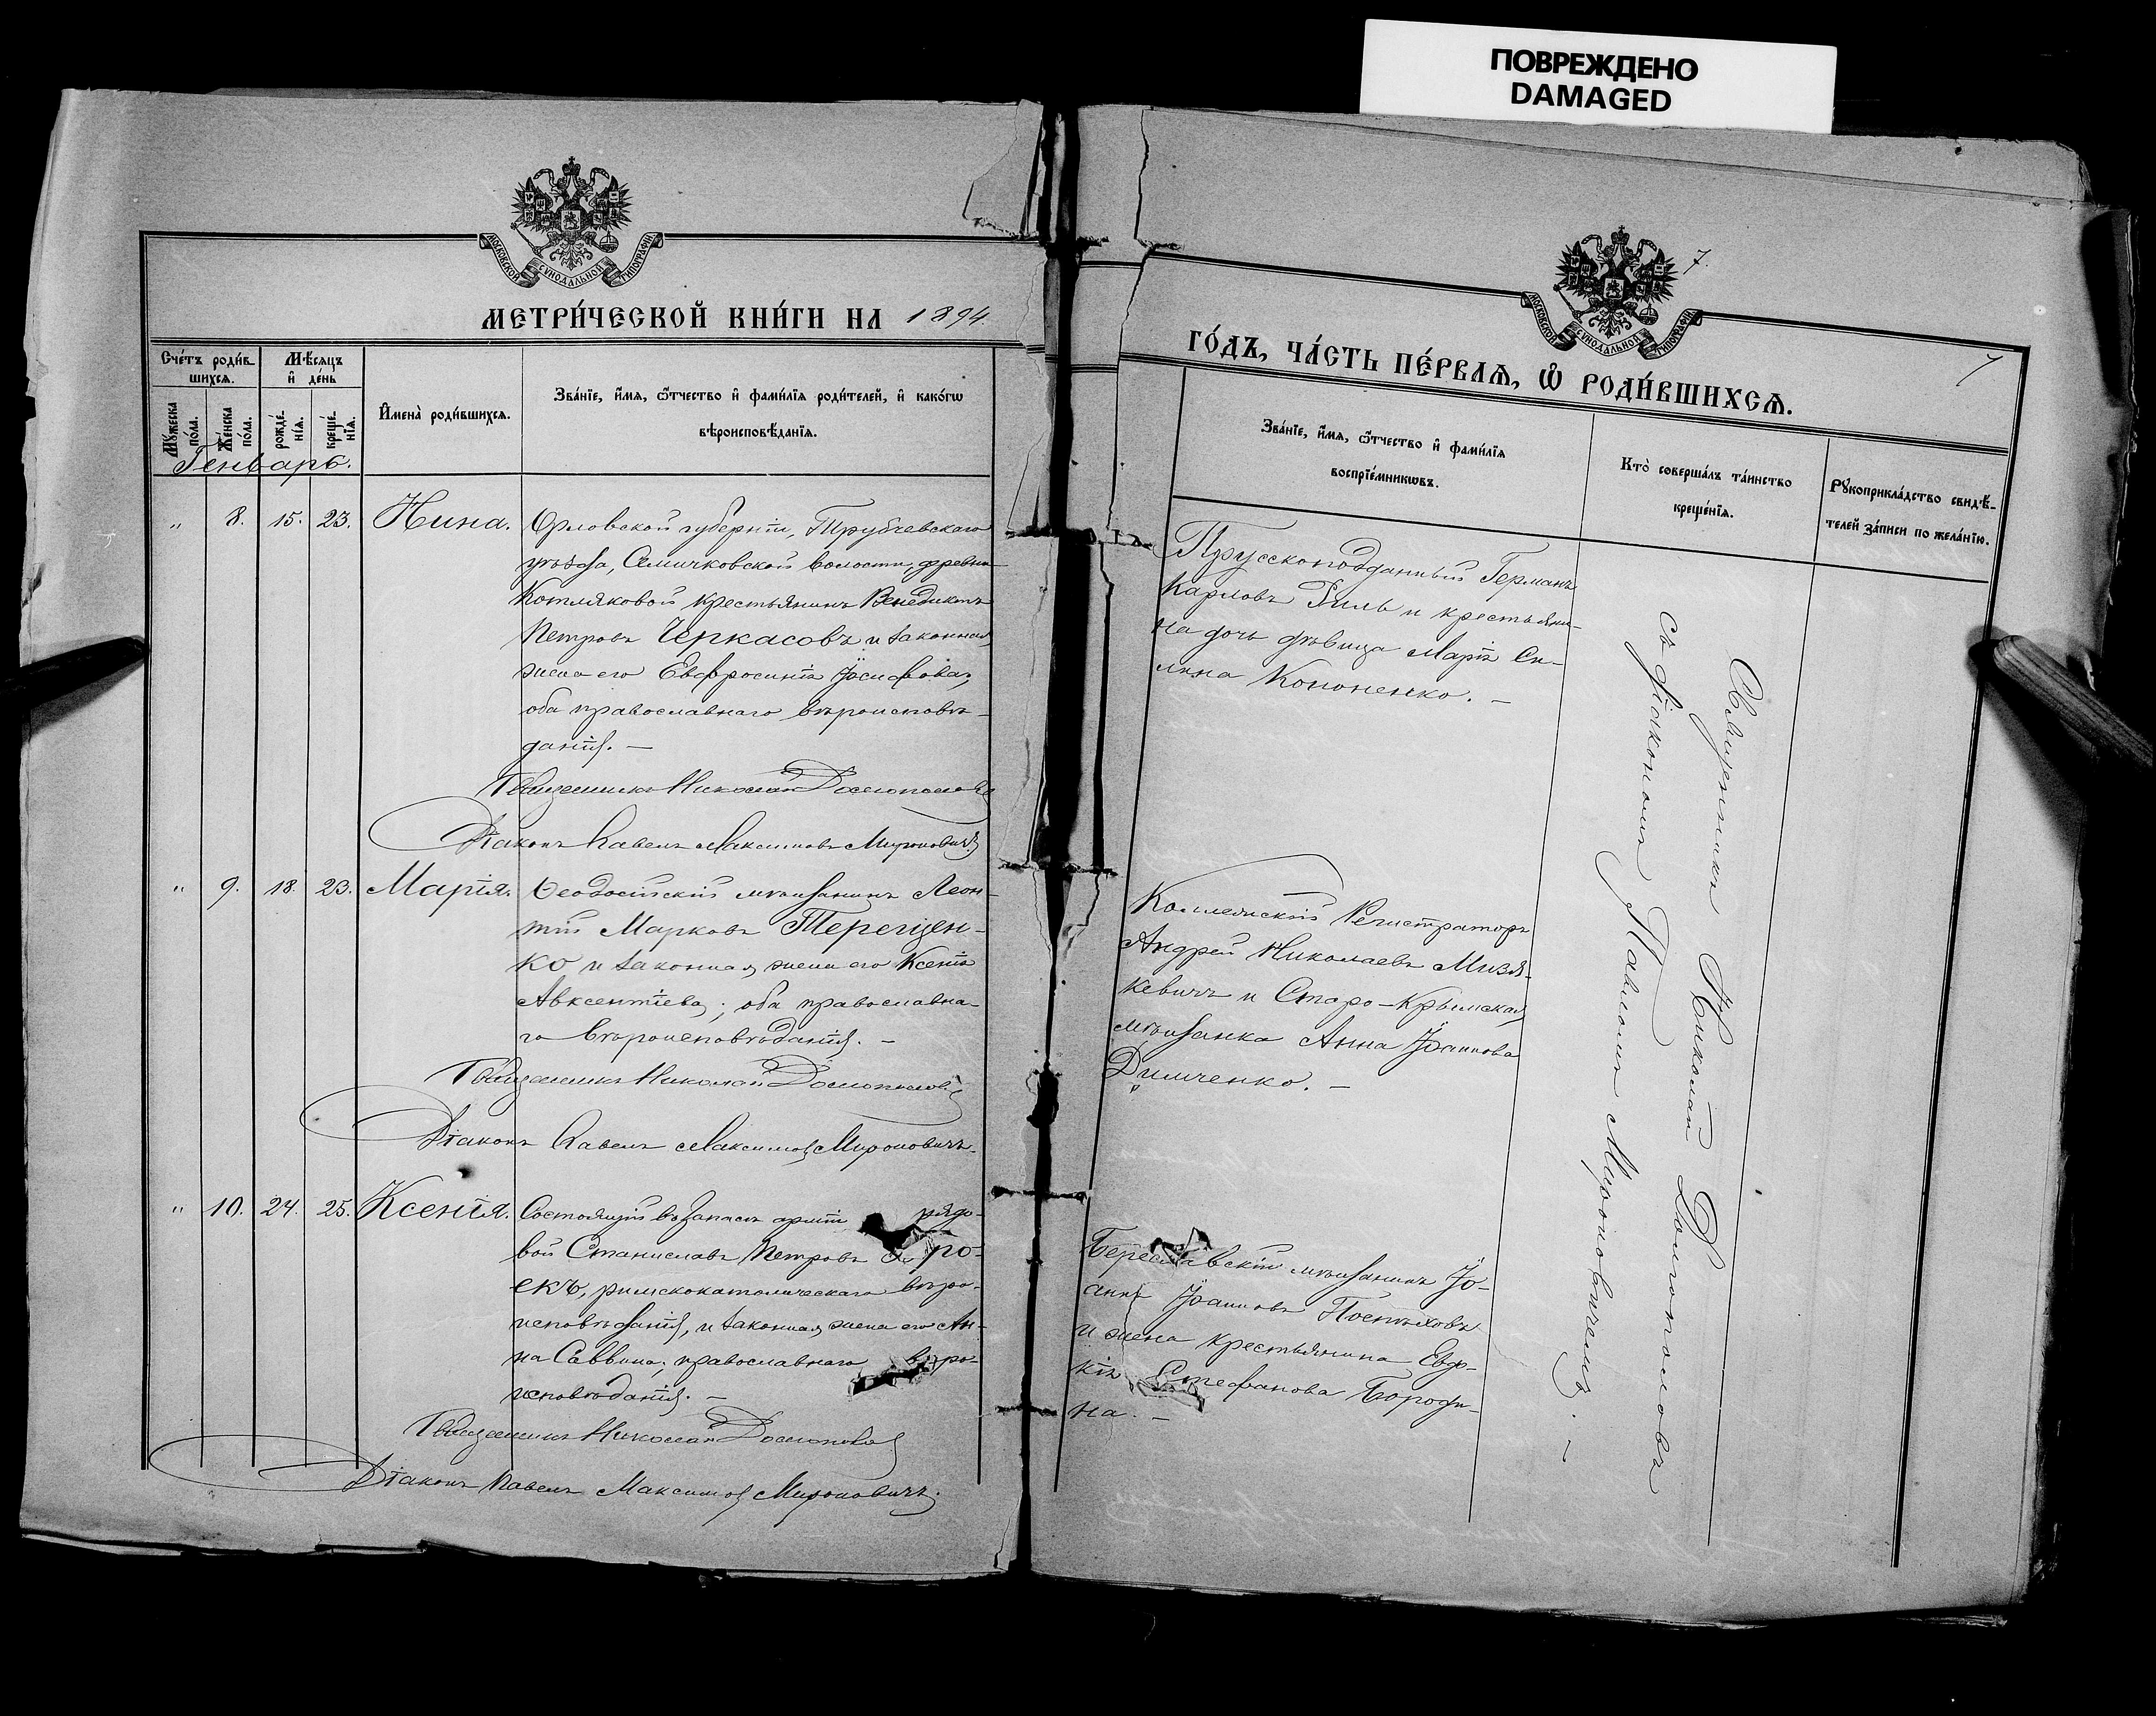 ПОВРЕЖДЕНО
DAMAGED
МОСКОВСКОЙ СѴНОДАЛЬНОЙ ТИПОГРАФІИ
МЕТРИ́ЧЕСКОЙ КНИ́ГИ НА 1894.
Сче́тъ роди́в
шихсѧ.
Мѣ́сѧцъ
и҆ де́нь
Мꙋ́жеска
по́ла.
Же́нска
по́ла.
рожде́
нїѧ.
креще́
нїѧ.
И҆мена̀ роди́вшихсѧ.
Зва́нїе, и҆́мѧ, ѻ҆́тчество и҆ фами́лїѧ роди́телей, и҆ како́гѡ
вѣроисповѣ́данїѧ.
Генварь.
„ 8. 15. 23. Нина. Орловской губерніи, Трубчевскаго
уѣзда, Семичковской волости, деревни
Котляковой крестьянинъ Венедиктъ
Петровъ Черкасовъ и законная
жена его Евфросинія Іосифова,
оба православнаго вѣроисповѣ-
данія. —
Священникъ Николай Долгополовъ
Діаконъ Павелъ Максимовъ Мироновичъ.
„ 9. 18. 23. Марія. Ѳеодосійскій мѣщанинъ Леон-
тій Марковъ Терещен-
ко и законная жена его Ксенія
Авксентіева; оба православна-
го вѣроисповѣданія. —
Священникъ Николай Долгополовъ
Діаконъ Павелъ Максимовъ Мироновичъ.
„ 10. 24. 25. Ксенія. Состоящій въ запасѣ арміи рядо-
вой Станиславъ Петровъ ро-
екъ, римскокатолическаго вѣро-
исповѣданія, и законная жена его Ан-
на Саввина, православнаго вѣро-
исповѣданія. —
Священникъ Николай Долгополовъ
Діаконъ Павелъ Максимовъ Мироновичъ.
7.
МОСКОВСКОЙ СѴНОДАЛЬНОЙ ТИПОГРАФІИ
7
ГО́ДЪ, ЧА́СТЬ ПЕ́РВАѦ, Ѡ҆ РОДИ́ВШИХСѦ.
Зва́нїе, и҆́мѧ, ѻ҆́тчество и҆ фами́лїѧ
воспрїе́мникѡвъ.
Кто̀ соверша́лъ та́инство
креще́нїѧ.
Рꙋкоприкла́дство свидѣ́-
телей за́писи по жела́нїю.
Прусскоподданный Германъ
Карловъ Гиль и крестьяни-
на дочь дѣвица Марія Си-
лина Кононенко. —
Коллежскій Регистраторъ
Андрей Николаевъ Мизя-
кевичъ и Старо-Крымская
мѣщанка Анна Іоаннова
Димченко. —
Бериславскій мѣщанинъ Іо-
аннъ Іоанновъ Постыховъ
и жена крестьянина Евдо-
кія Стефанова Бороди-
на. —
Священникъ Николай Долгополовъ
съ діакономъ Павломъ Мироновичемъ. —